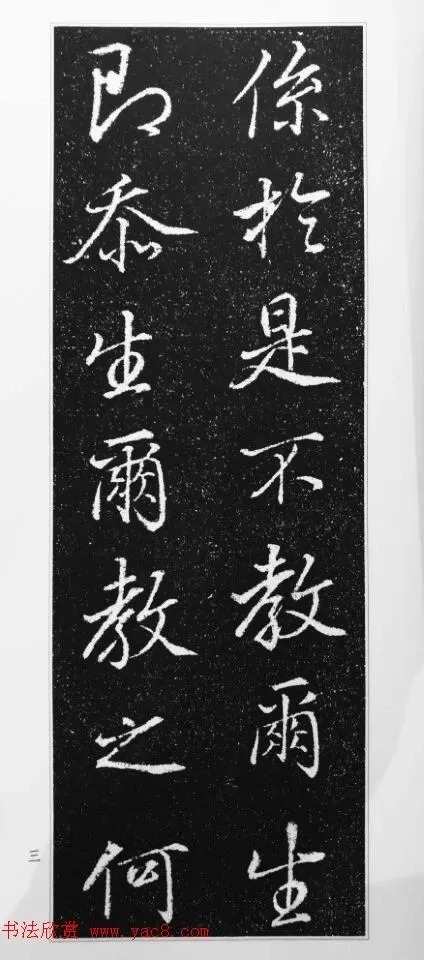 係於是不教爾生
即忝生爾教之何
三
书法欣赏 www.yac8.com